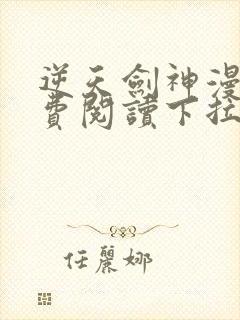 逆天劍神漫
費閱讀下拉
任麗娜